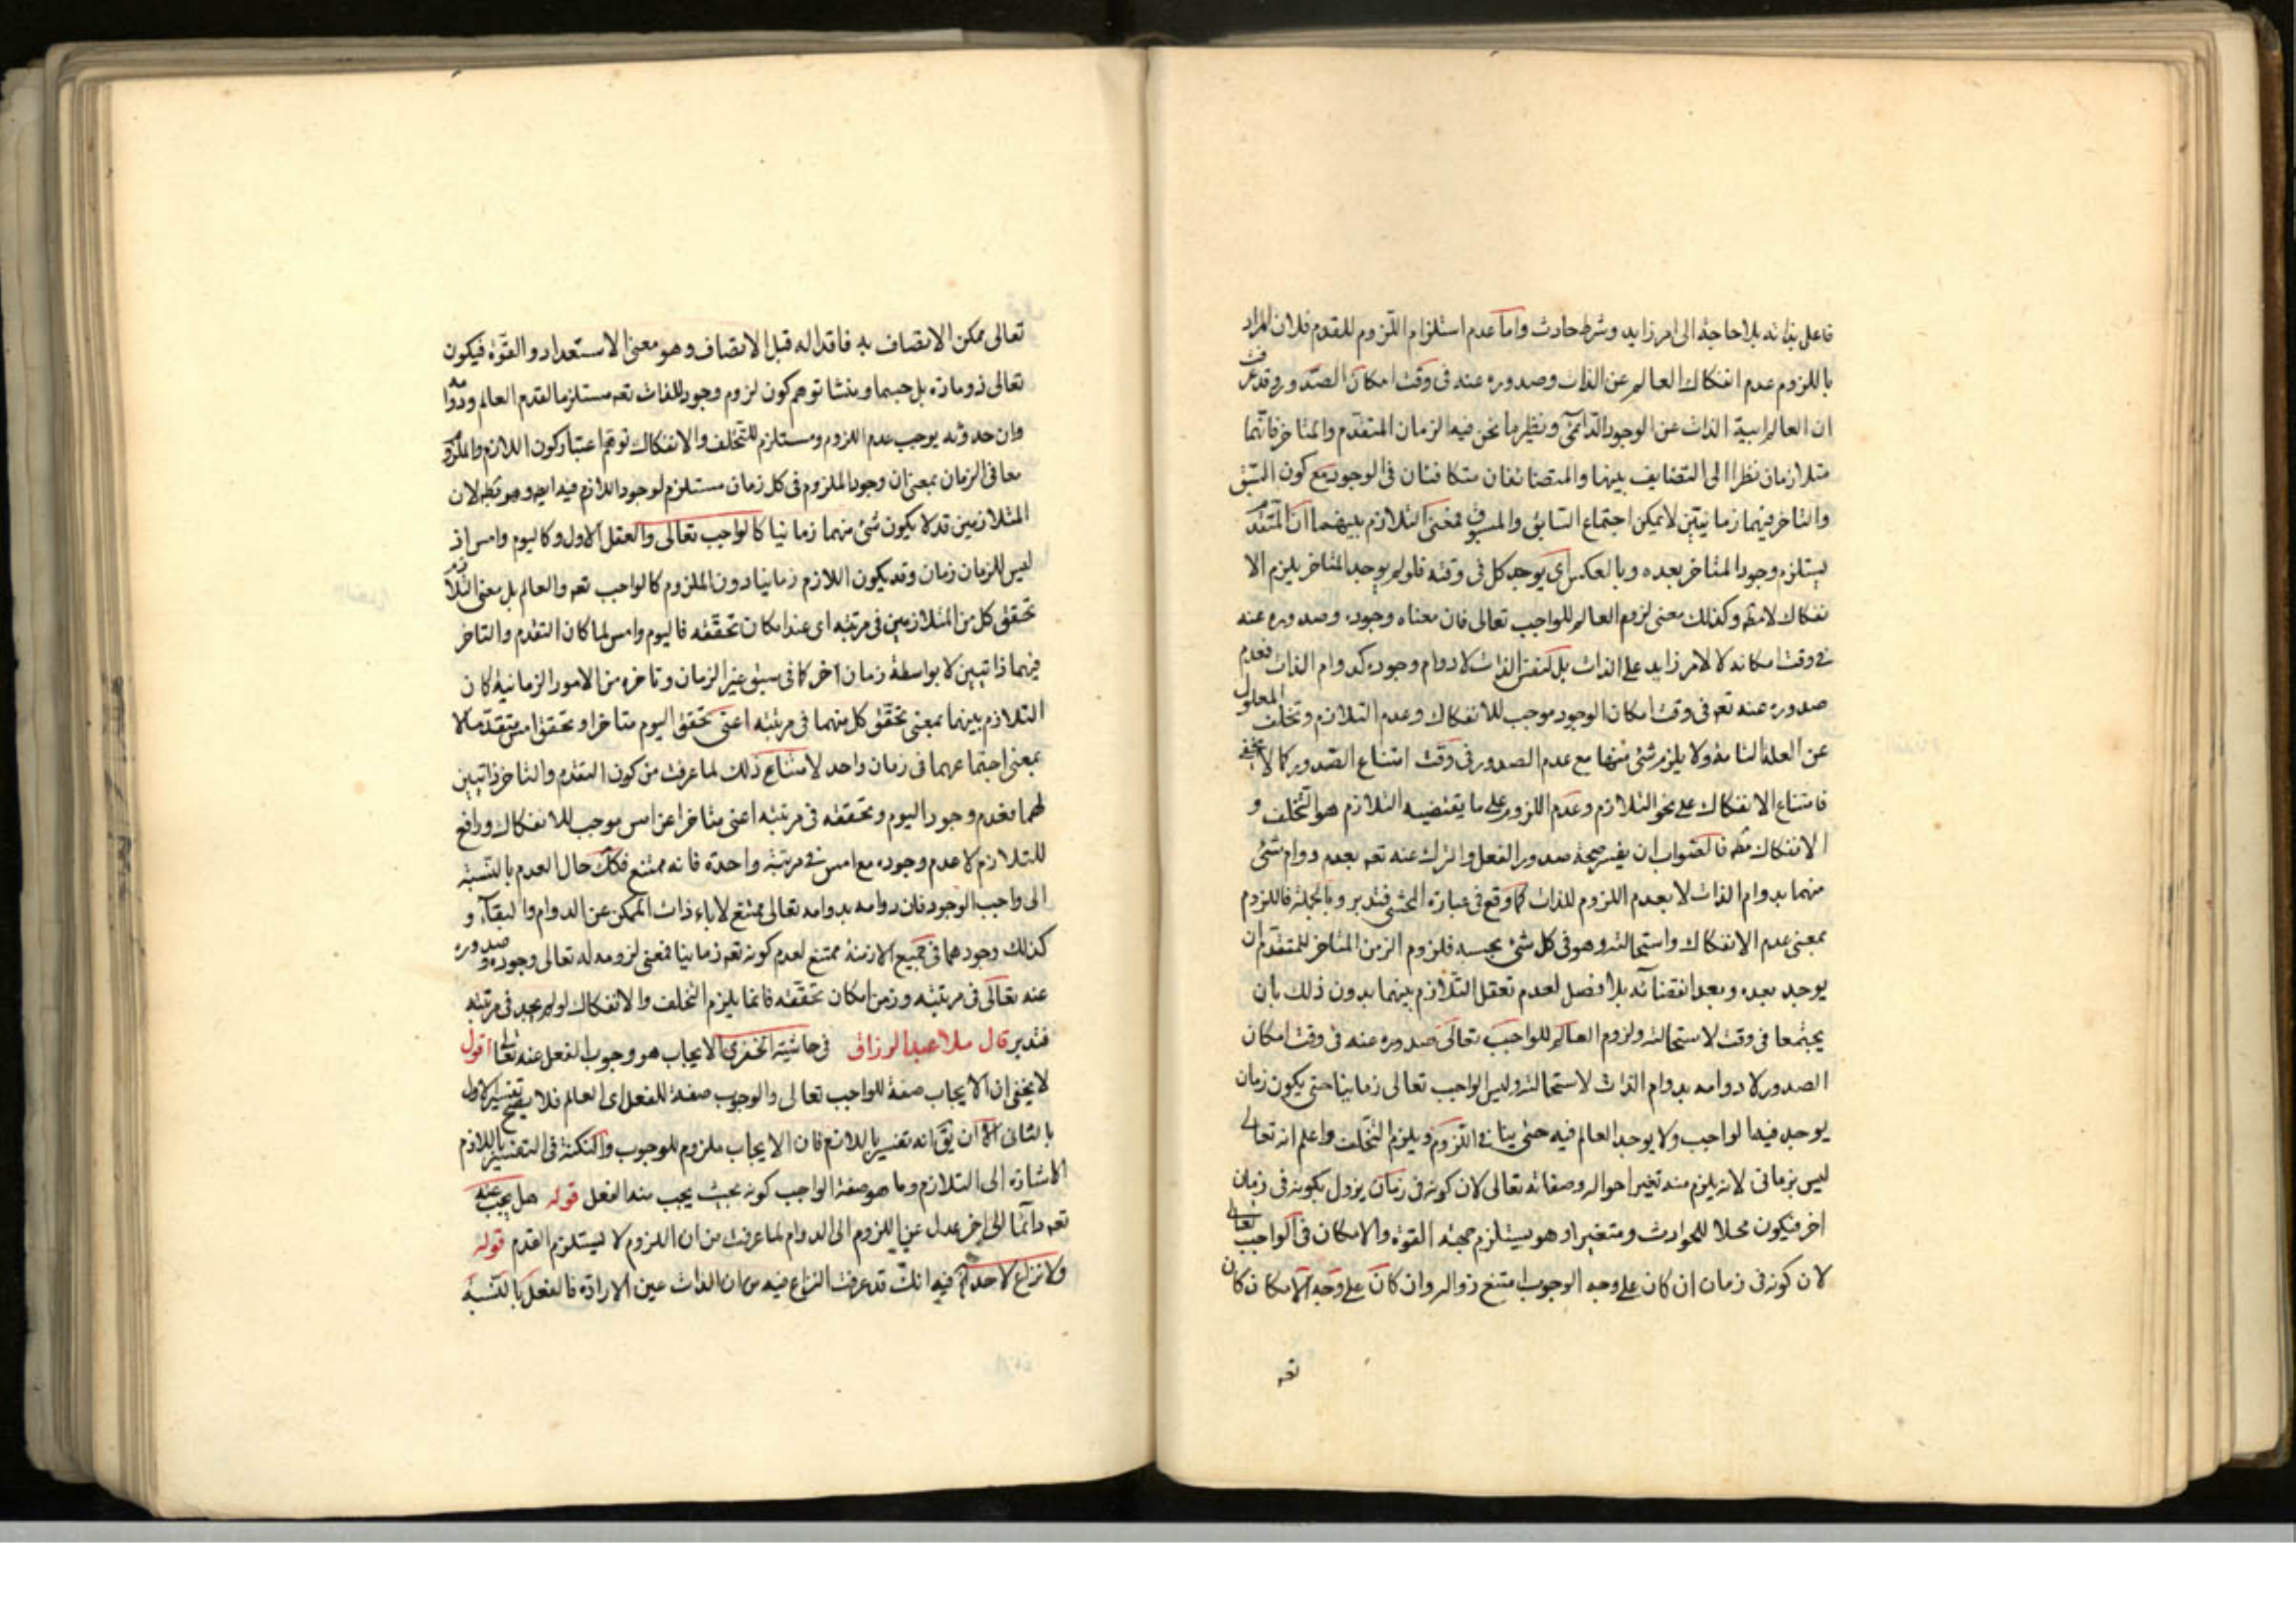 فاعل بذاته بلا حاجة الى امر زايد وشرط حادث واما عدم استلزام اللزوم للقدم فلان المراد
باللزوم عدم انفكاك العالم عن الذات وصدوره عنه فى وقت امكان الصدور وقد عرفت
ان العالم الذات عن الوجود الدائمى ونظير ما نحن فيه الزمان المتقدم والمتاخر فانهما
متلازمان نظرا الى التضايف بينهما والمتضائفان متكافئان فى الوجود مع كون السبق
والتاخر فيهما زمانيين لا يمكن اجتماع السابق والمسبوق فمعنى التلازم بينهما ان المتقدم
يستلزم وجود المتاخر بعده وبالعكس اى يوجد كل فى وقته فلو لم يوجد المتاخر يلزم الا
نفكاك لا مطـ وكذلك معنى لزوم العالم للواجب تعالى فان معناه وجوده وصدوره عنه
فى وقت امكانه لا لامر زايد على الذات بل لنفس الذات لا دوام وجوده كدوام الذات فعدم
صدوره عنه تعـ فى وقت امكان الوجود موجب للانفكاك وعدم التلازم وتخلف المعلول
عن العلة التامة ولا يلزم شئ منها مع عدم الصدور فى وقت امتناع الصدور كما لا يخفى
فامتناع الانفكاك على نحو التلازم وعدم اللزوم على ما يقتضيه التلازم هو التخلف و
الانفكاك مطـ فالصواب ان يفسر صحة صدور الفعل والترك عنه تعـ بعدم دوام شئ
منهما بدوام الذات لا بعدم اللزوم للذات كما وقع فى عبارة المحشى فتدبر وبالجملة فاللزوم
بمعنى عدم الانفكاك واستحالته وهو فى كل شئ بحسبه فلزوم الزمن المتاخر للمتقدم ان
يوجد بعده وبعد انقضائه بلا فصل لعدم تعقل التلازم بينهما بدون ذلك بان
يجتمعا فى وقت لاستحالته ولزوم العالم للواجب تعالى صدوره عنه فى وقت امكان
الصدور لا دوامه بدوام الذات لاستحالته وليس الواجب تعالى زمانيا حتى يكون زمان
يوجد فيه الواجب ولا يوجد العالم فيه حتى ينافى اللزوم ويلزم التخلف واعلم انه تعالى
ليس بزمانى لانه يلزم منه تغير احواله وصفاته تعالى لان كونه فى زمان يزول بكونه فى زمان
اخر فيكون محلا للحوادث ومتغيرا وهو يستلزم جهة القوة والامكان فى الواجب تعالى
لان كونه فى زمان ان كان على وجه الوجوب امتنع زواله وان كان على وجه الامكان كان
تعـ
تعالى ممكن الاتصاف به فاقدا له قبل الاتصاف وهو معنى الاستعداد والقوة فيكون
تعالى ذو مادة بل جسما ومنشا توهم كون لزوم وجود للذات تعـ مستلزما لقدم العالم ودوامه
وان حدوثه يوجب عدم اللزوم ومستلزم للتخلف والانفكاك توهم اعتبار كون اللازم والملزوم
معا فى الزمان بمعنى ان وجود الملزوم فى كل زمان مستلزم لوجود اللازم فيه ايضـ وهو بطـ لان
المتلازمين قد لا يكون شئ منهما زمانيا كالواجب تعالى والعقل الاول وكاليوم وامس اذ
ليس للزمان زمان وقد يكون اللازم زمانيا دون الملزوم كالواجب تعـ والعالم بل معنى التلازم
تحقق كل من المتلازمين فى مرتبته اى عند امكان تحققه فاليوم وامس لما كان التقدم والتاخر
فيهما ذاتيين لا بواسطة زمان آخر كما فى سبق غير الزمان وتاخره من الامور الزمانية كان
التلازم بينهما بمعنى تحقق كل منهما فى مرتبته اعنى تحقق اليوم متاخرا وتحقق امس متقدما لا
بمعنى اجتماعهما فى زمان واحد لامتناع ذلك لما عرفت من كون التقدم والتاخر ذاتيين
لهما فعدم وجود اليوم وتحققه فى مرتبته اعنى متاخرا عن امس موجب للانفكاك ورافع
للتلازم لا عدم وجوده مع امس فى مرتبة واحدة فانه ممتنع فكك حال العدم بالنسبة
الى واجب الوجود فان دوامه بدوامه تعالى ممتنع لاباء ذات الممكن عن الدوام والبقاء و
كذلك وجودهما فى جميع الازمنة ممتنع لعدم كونه تعـ زمانيا فمعنى لزومه له تعالى وجوده وصدوره
عنه تعالى فى مرتبته وزمن امكان تحققه فانما يلزم التخلف والانفكاك لو لم يجد فى مرتبته
فتدبر قال ملا عبد الرزاق فى حاشية الخفرى الايجاب هو وجوب الفعل عنه تعالى اقول
لا يخفى ان الايجاب صفة للواجب تعالى والوجوب صفة للفعل اى العالم فلا يصح تفسير الاول
بالثانى الا ان يق انه تفسير باللازم فان الايجاب ملزوم للوجوب والنكتة فى التفسير باللازم
الاشارة الى التلازم وما هو صفة الواجب كونه بحيث يجب منه الفعل قوله هل يجب عنه
تعـ دائما الى اخر عدل عن اللزوم الى الدوام لما عرفت من ان اللزوم لا يستلزم القدم قوله
ولا نزاع لاحد فيه انك قد عرفت النزاع فيه من ان الذات عين الارادة فالفعل بالنسبة